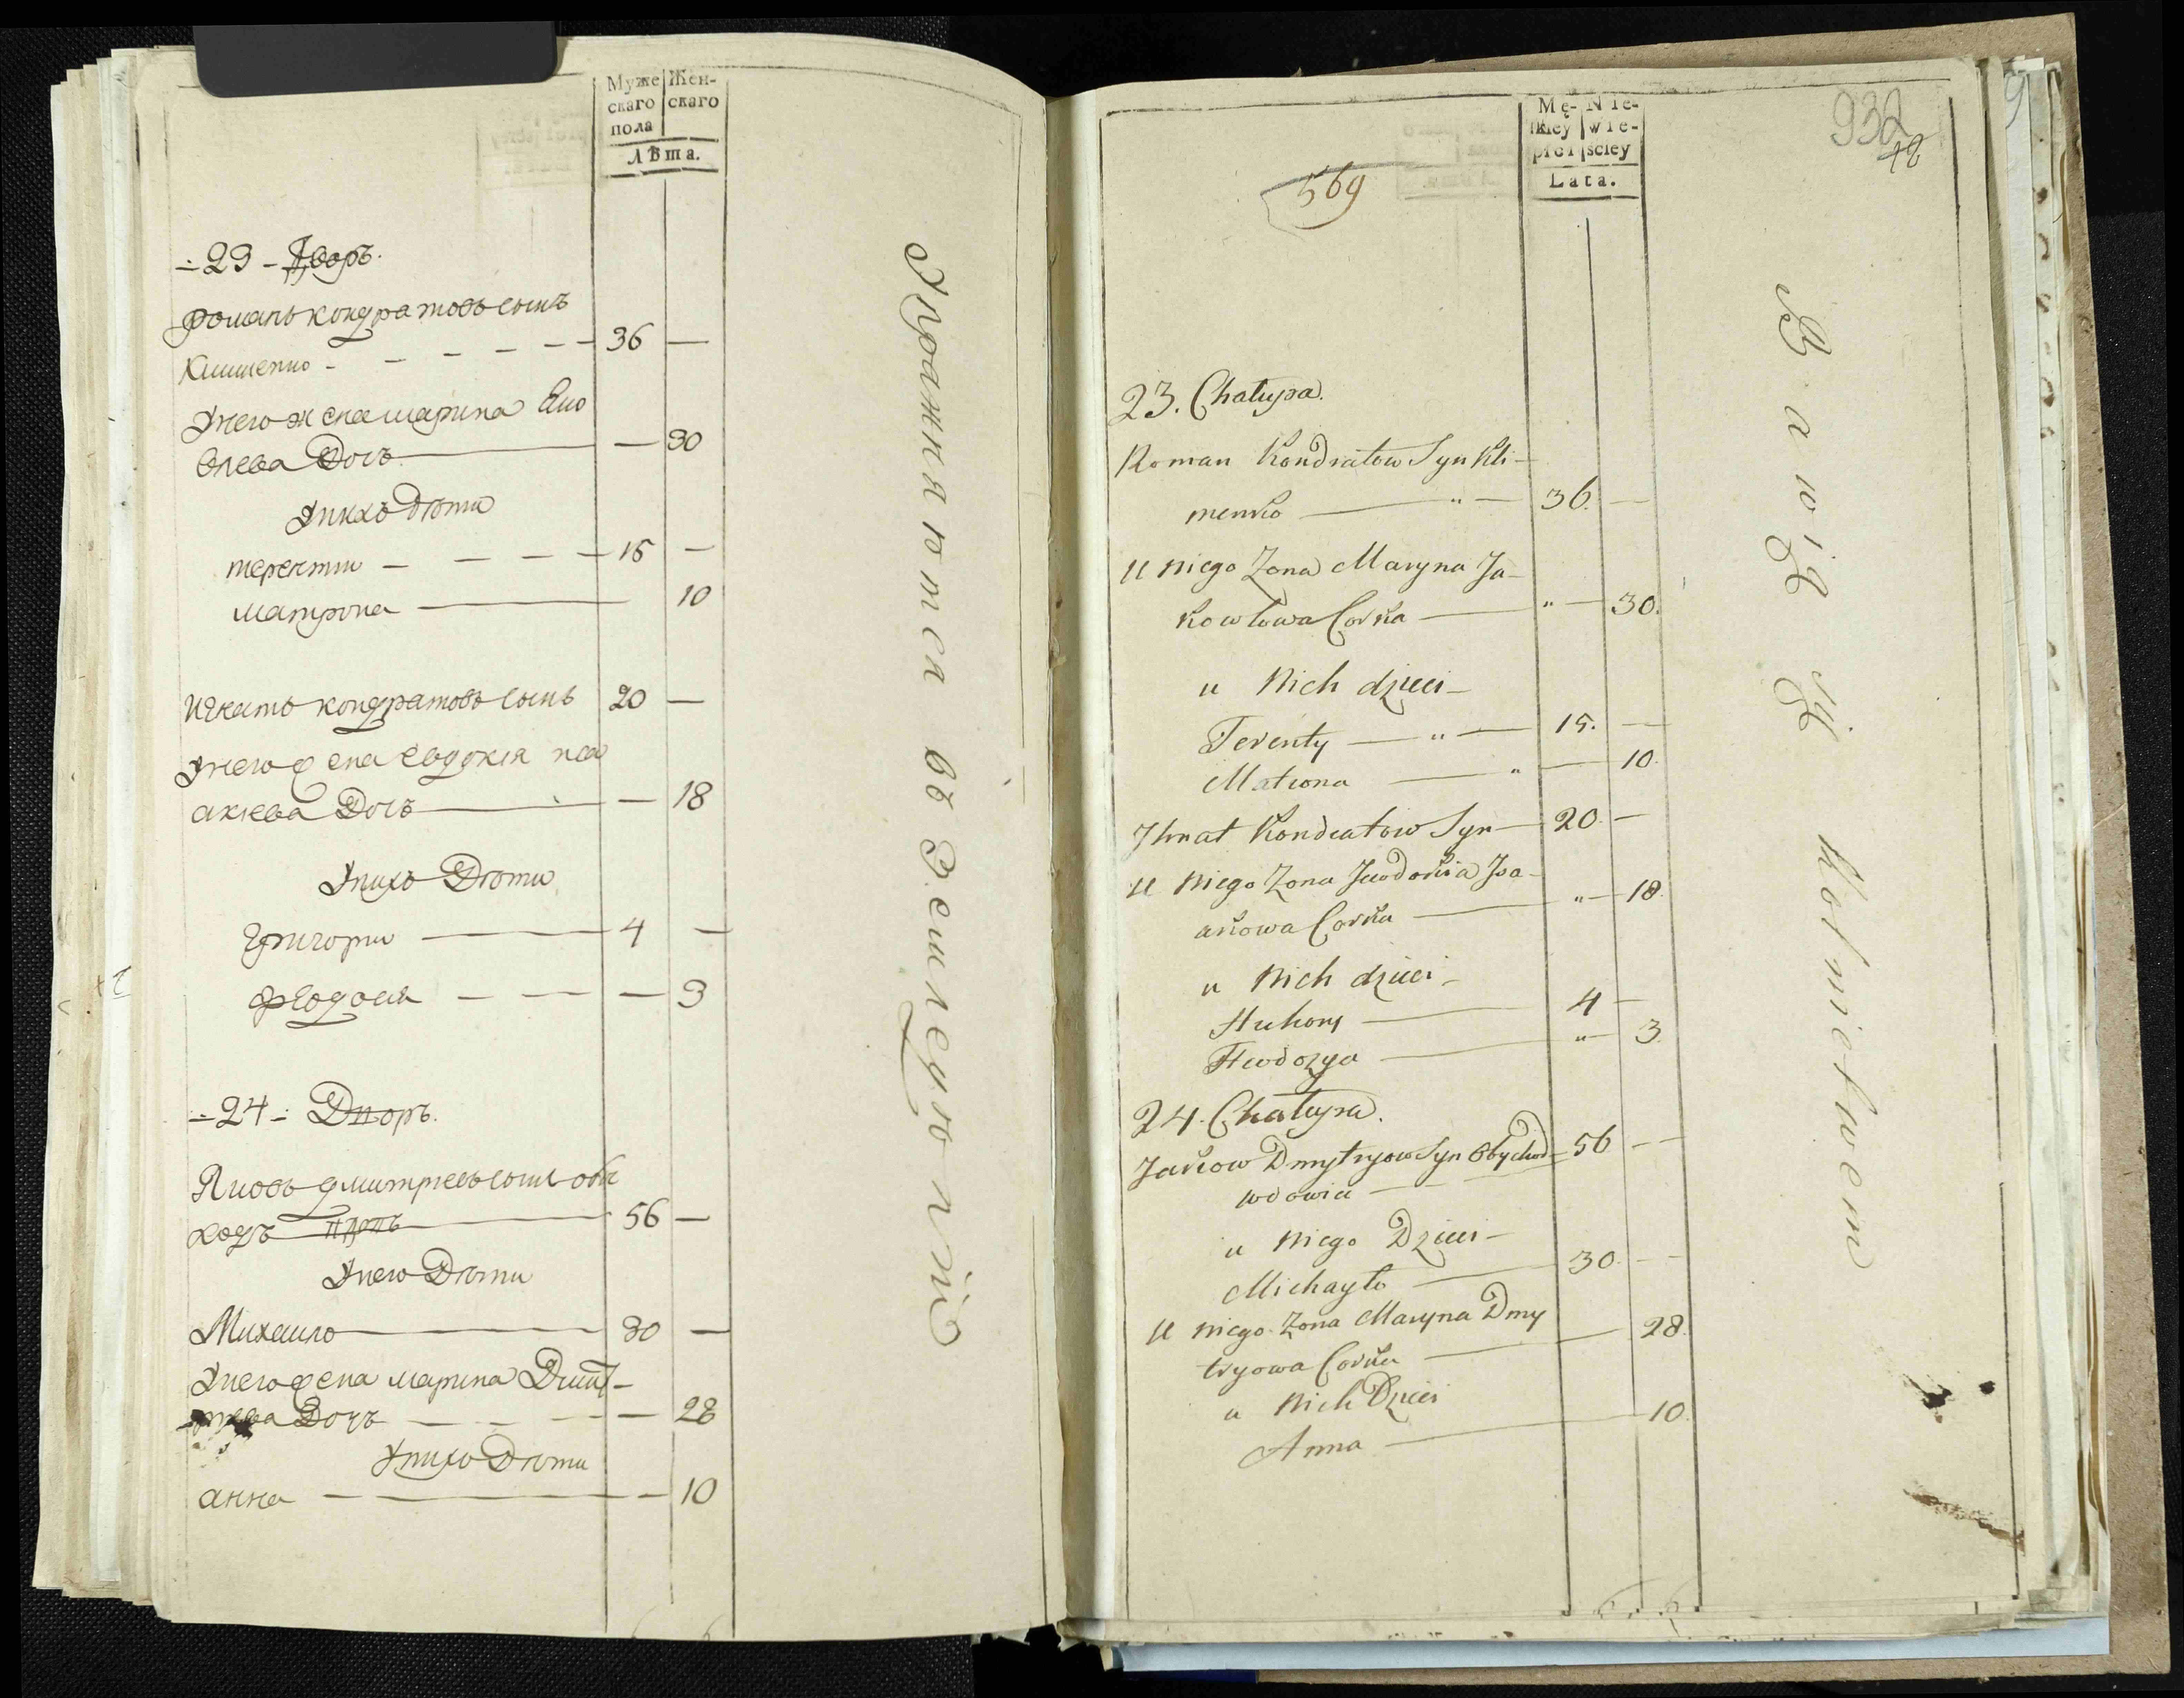 Муже
скаго
пола
Жен-
скаго
Лѣта.
-23- Дворъ.
Романъ кондратовъ сынъ
Клименко - - - - - 36 —
Унего жена марина Яко
влева Дочь — — 30
Унихъ дѣти
терентии — — — 15 —
матрона — 10
игнатъ кондратовъ сынъ 20 —
Унего жена евдокия иса
акиева Дочь — — 18
Унихъ Дѣти
Григори — 4 —
Феодосия — — — 3
-24- Дворъ.
Яковъ дмитриевъ сынъ обы
ходъ — 56 —
Унего Дѣти
Михаило — 30 —
Унего жена марина Дмит-
риева Дочь — — — 28
Унихъ Дѣти
анна — — 10
Упражняются въ Земледѣлии
932
42
569
Mę-
skiey
płci
Nie-
wie-
sciey
Lata.
23. Chałupa.
Roman Kondratow Syn Kli-
menko — " — 36. —
U niego Zona Maryna Ja-
kowlowa Corka — " — 30.
u Nich dzieci -
Terenty — " — 15. —
Matrona — " — 10.
Ihnat Kondratow Syn — 20. —
U niego Zona Jewdokia Isa-
akowa Corka — " — 18.
u Nich dzieci -
Huhory — 4 —
Fteodozya — " — 3.
24. Chałupa.
Jakow Dmytryow Syn Obychod- 56 —
wdowiec — —
u niego Dzieci -
Michayło — 30. —
U niego Zona Maryna Dmy
tryowa Corka — 28.
u Nich Dzieci
Anna — 10.
Bawią się Rolnictwem